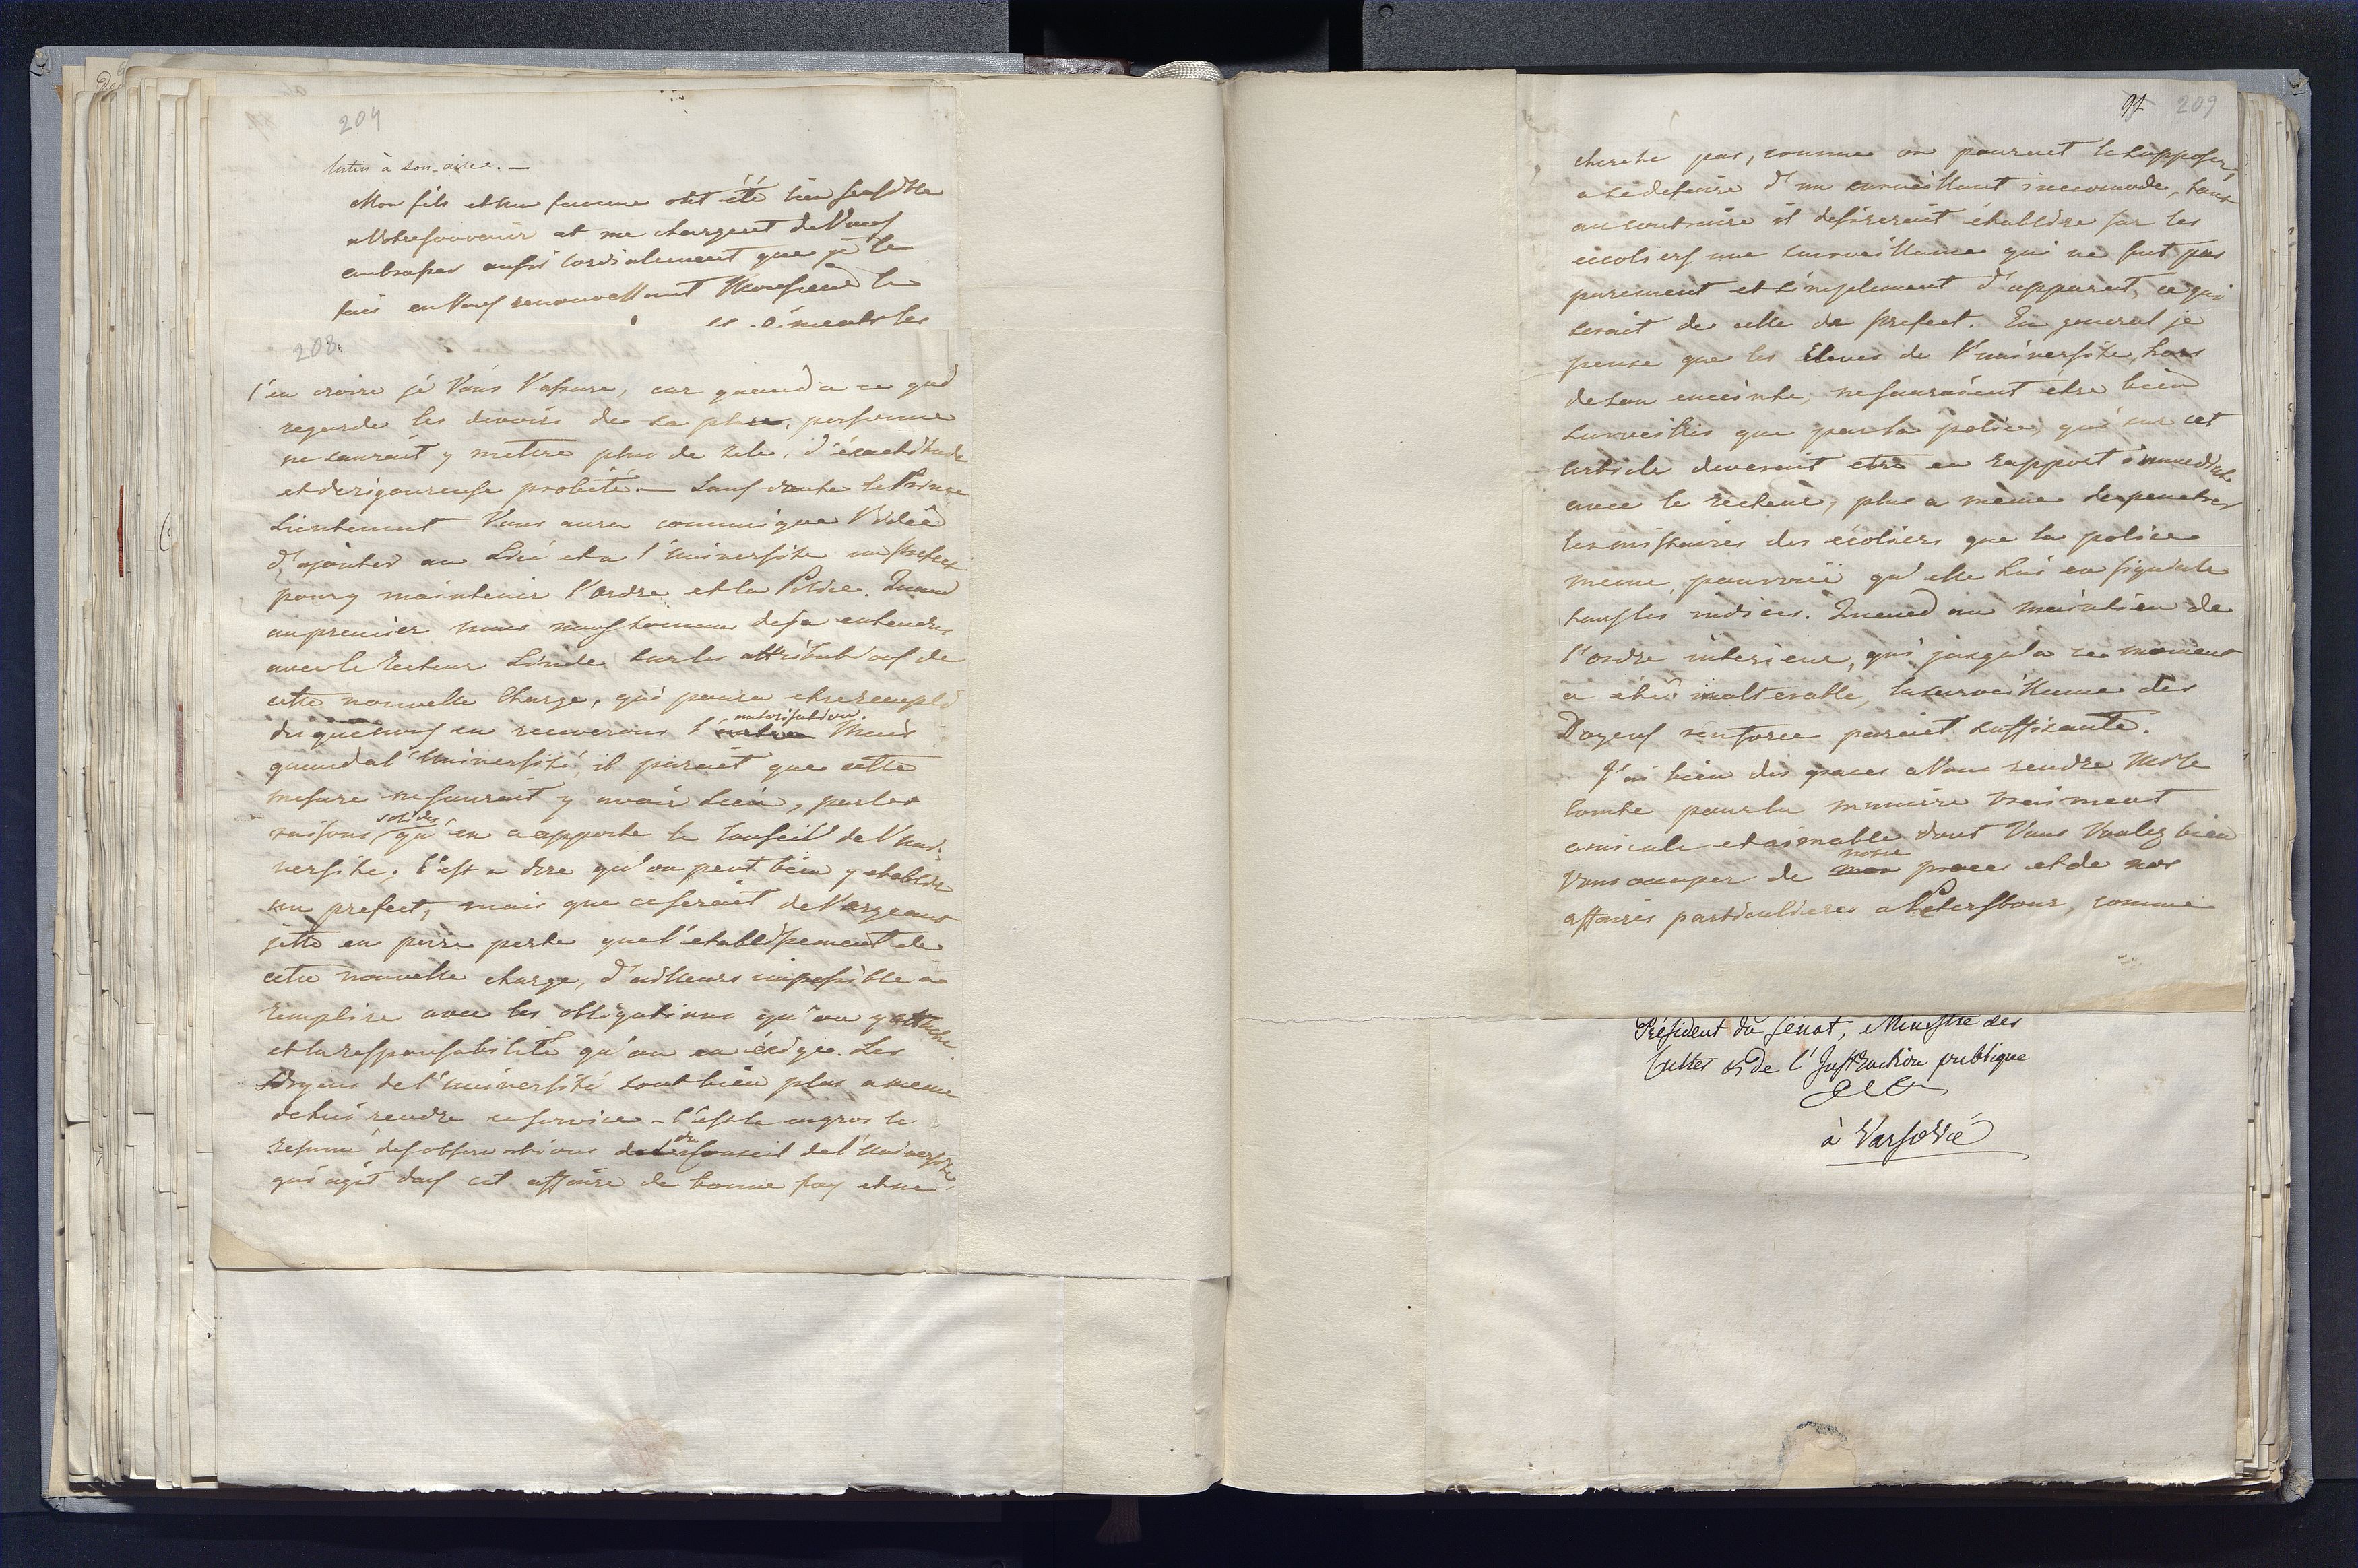 204
à son aise. —
Mon fils et sa femme ont été bien sensible
a Votre souvenir et me chargent de Vous
embrasser aussi cordialement que je le
fais en Vous renouvellant Monsieur le
208.
l'en croire je Vous l'assure, car quand a ce qui
regarde les devoirs de sa place, personne
ne saurait y mettre plus de zele, d'éxactitude
et de rigoureuse probité. — Sans doute le Prince
Lieutenant Vous aura communiqué l'idée
d'ajouter au Licé et a l'Université un prefect
pour y maintenir l'ordre et la Police. Quand
au premier nous nous somme deja entendu
avec le Recteur Linde sur les attributions de
cette nouvelle charge, qui poura etre rempli
des que nous en recevrons l' autorisation. Mais
quand a l'Université, il parait que cette
mesure ne saurait y avoir lieu, par les
raisons solides qu'en a apporté le Conseil de l'Uni-
versité. C'est a dire qu'on peut bien y etablir
un prefect, mais que ce serait de l'argeant
jetté en pure perte que l'etablissement de
cette nouvelle charge, d'ailleurs impossible a
remplire avec les obligations qu'on y attache
et la responsabilité qu'on en éxige. Les
Doyens de l'université sont bien plus a meme
de lui rendre ce service – c'est la en gros le
resumé des observations du Conseil de l'Université,
qui agit dans cet affaire de bonne foy et ne
97 209
cherche pas, comme on pourait le supposer,
a se defaire d'un surveillant incomode,
au contraire il desirerait établire sur les
écoliers une surveillance qui ne fut pas
purement et simplement d'apparat, ce qui
serait de celle du prefect. En general je
pense que les Eleves de l'université, hors
de son enceinte, ne sauraient etre bien
surveillés que par la police, qui sur cet
article deverait etre en rapport immediat
avec le recteur, plus a même de penetrer
les mistaires des écoliers que la police
meme, pourvüe qu'elle lui en signale
tous les indices. Quand au maintien de
l'ordre interieur, qui jusqu'a ce moment
a été inalterable, la surveillance des
Doyens renforcé parait suffisante.
J'ai bien des graces a Vous rendre Mr le
Comte pour la maniere vraiment
amicale et aimable dont Vous Voulez bien
Vous occuper de notre proces et de nos
affaires particulieres a Petersbour, comme
Président du Sénat, Ministre des
Cultes et de l'Instruction publique
à Varsovie